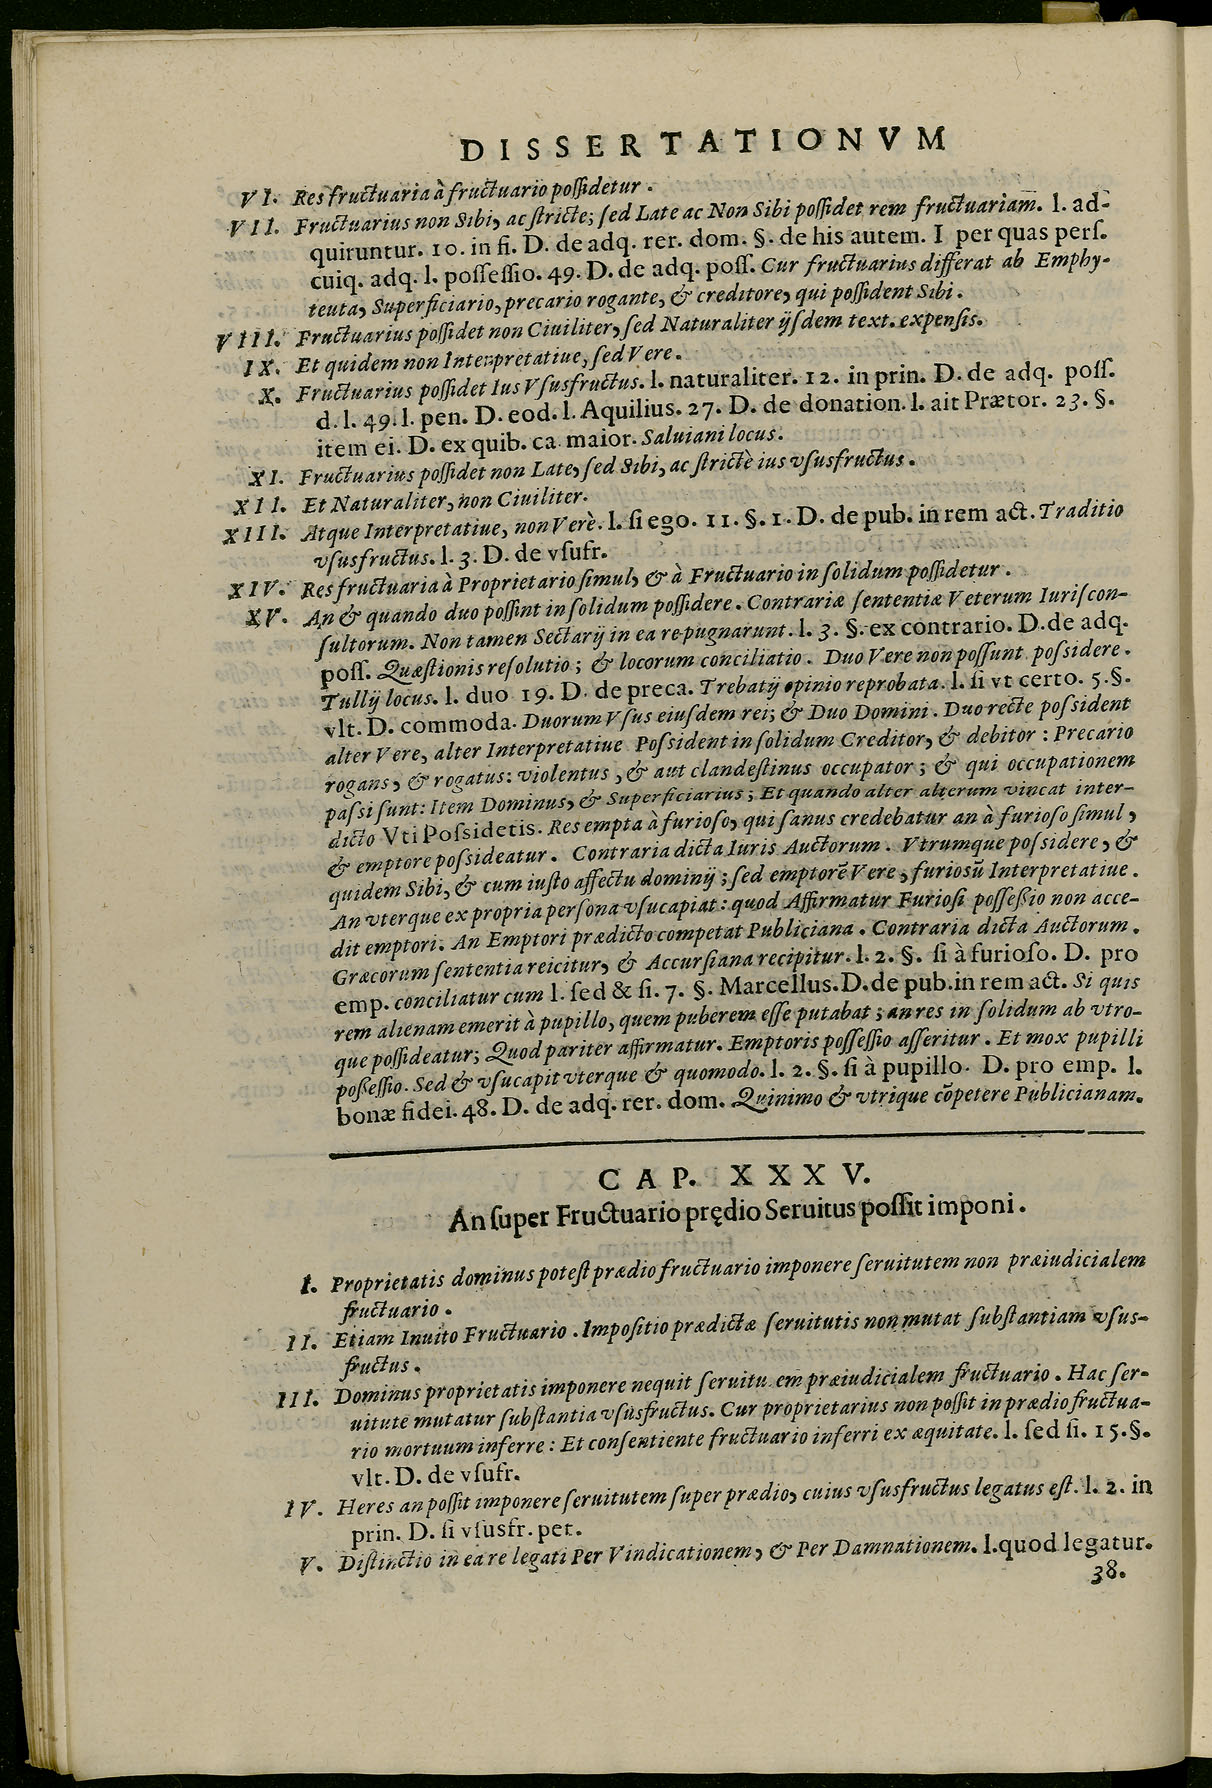 DISSERTATIONVM
VI. Res fructuaria à fructuario possidetur.
VII. Fructuarius non Sibi, ac stricte; sed Late ac Non Sibi possidet rem fructuariam̅. l. ad-
quiruntur. 10. in fi. D. de adq. rer. dom. §. de his autem. I per quas pers.
cuiq. adq. l. possessio. 49. D. de adq. poss. Cur fructuarius differat ab Emphy-
teuta, Superficiario, precario rogante, & creditore, qui possident Sibi.
VIII. Fructuarius possidet non Ciuiliter, sed Naturaliter ijsdem text. expensis.
IX. Et quidem non Interpretatiue, sed Vere.
X. Fructuarius possidet Ius Vsusfructus. l. naturaliter. 12. in prin. D. de adq. poss.
d. l. 49. l. pen. D. eod. l. Aquilius. 27. D. de donation. l. ait Prætor. 23. §.
item ei. D. ex quib. ca. maior. Saluiani locus.
XI. Fructuarius possidet non Late, sed Sibi, ac strictè ius vsusfructus.
XII. Et Naturaliter, non Ciuiliter.
XIII. Atque Interpretatiue, non Verè. l. si ego. 11. §. 1. D. de pub. in rem act. Traditio
vsusfructus. l. 3. D. de vsufr.
XIV. Res fructuaria à Proprietario simul, & à Fructuario in solidum possidetur.
XV. An & quando duo possint in solidum possidere. Contrariæ sententiæ Veterum Iuriscon-
sultorum. Non tamen Sectarij in ea repugnarunt. l. 3. §. ex contrario. D. de adq.
poss. Quæstionis resolutio; & locorum conciliatio. Duo Vere non possunt possidere.
Tullij locus. l. duo 19. D. de preca. Trebatij opinio reprobata. l. si vt certo. 5. §.
vlt. D. commoda. Duorum Vsus eiusdem rei; & Duo Domini. Duo recte possident
alter Vere, alter Interpretatiue Possident in solidum Creditor, & debitor: Precario
rogans, & rogatus: violentus, & aut clandestinus occupator; & qui occupationem
passi sunt: Item Dominus, & Superficiarius; Et quando alter alterum vincat inter-
dicto Vti Possidetis. Res empta à furioso, qui sanus credebatur an à furioso simul,
& emptore possideatur. Contraria dicta Iuris Auctorum. Vtrumque possidere, &
quidem Sibi, & cum iusto affectu dominij; sed emptorē Vere, furiosū Interpretatiue.
An vterque ex propria persona vsucapiat: quod Affirmatur Furiosi possessio non acce-
dit emptori. An Emptori prædicto competat Publiciana. Contraria dicta Auctorum.
Græcorum sententia reicitur, & Accursiana recipitur. l. 2. §. si à furioso. D. pro
emp. conciliatur cum l. sed & si. 7. §. Marcellus. D. de pub. in rem act. Si quis
rem alienam emerit à pupillo, quem puberem esse putabat; an res in solidum ab vtro-
que possideatur; Quod pariter affirmatur. Emptoris possessio asseritur. Et mox pupilli
possessio. Sed & vsucapit vterque & quomodo. l. 2. §. si à pupillo. D. pro emp. l.
bonæ fidei. 48. D. de adq. rer. dom. Quinimo & vtrique cōpetere Publicianam.
CAP. XXXV.
An super Fructuario prędio Seruitus possit imponi.
I. Proprietatis dominus potest prædio fructuario imponere seruitutem non præiudicialem
fructuario.
II. Etiam Inuito Fructuario. Impositio prædictæ seruitutis non mutat substantiam vsus-
fructus.
III. Dominus proprietatis imponere nequit seruitu em præiudicialem fructuario. Hac ser-
uitute mutatur substantia vsusfructus. Cur proprietarius non possit in prædio fructua-
rio mortuum inferre: Et consentiente fructuario inferri ex æquitate. l. sed si. 15. §.
vlt. D. de vsufr.
IV. Heres an possit imponere seruitutem super prædio, cuius vsusfructus legatus est. l. 2. in
prin. D. si vsusfr. pet.
V. Distinctio in ea re legati Per Vindicationem, & Per Damnationem. l. quod legatur.
38.